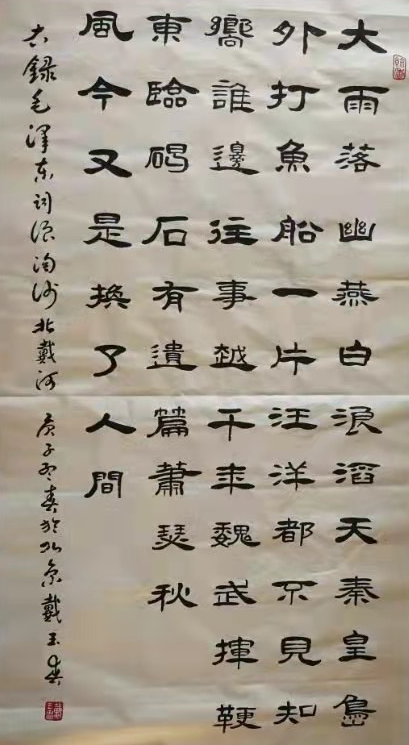 大雨落幽燕白浪滔天秦皇島
外打魚船一片汪洋都不見知
嚮誰邊往事越千年魏武揮鞭
東臨碣石有遺篇蕭瑟秋
風今又是換了人間
右錄毛澤东詞浪淘沙北戴河 庚子春於北京戴玉春